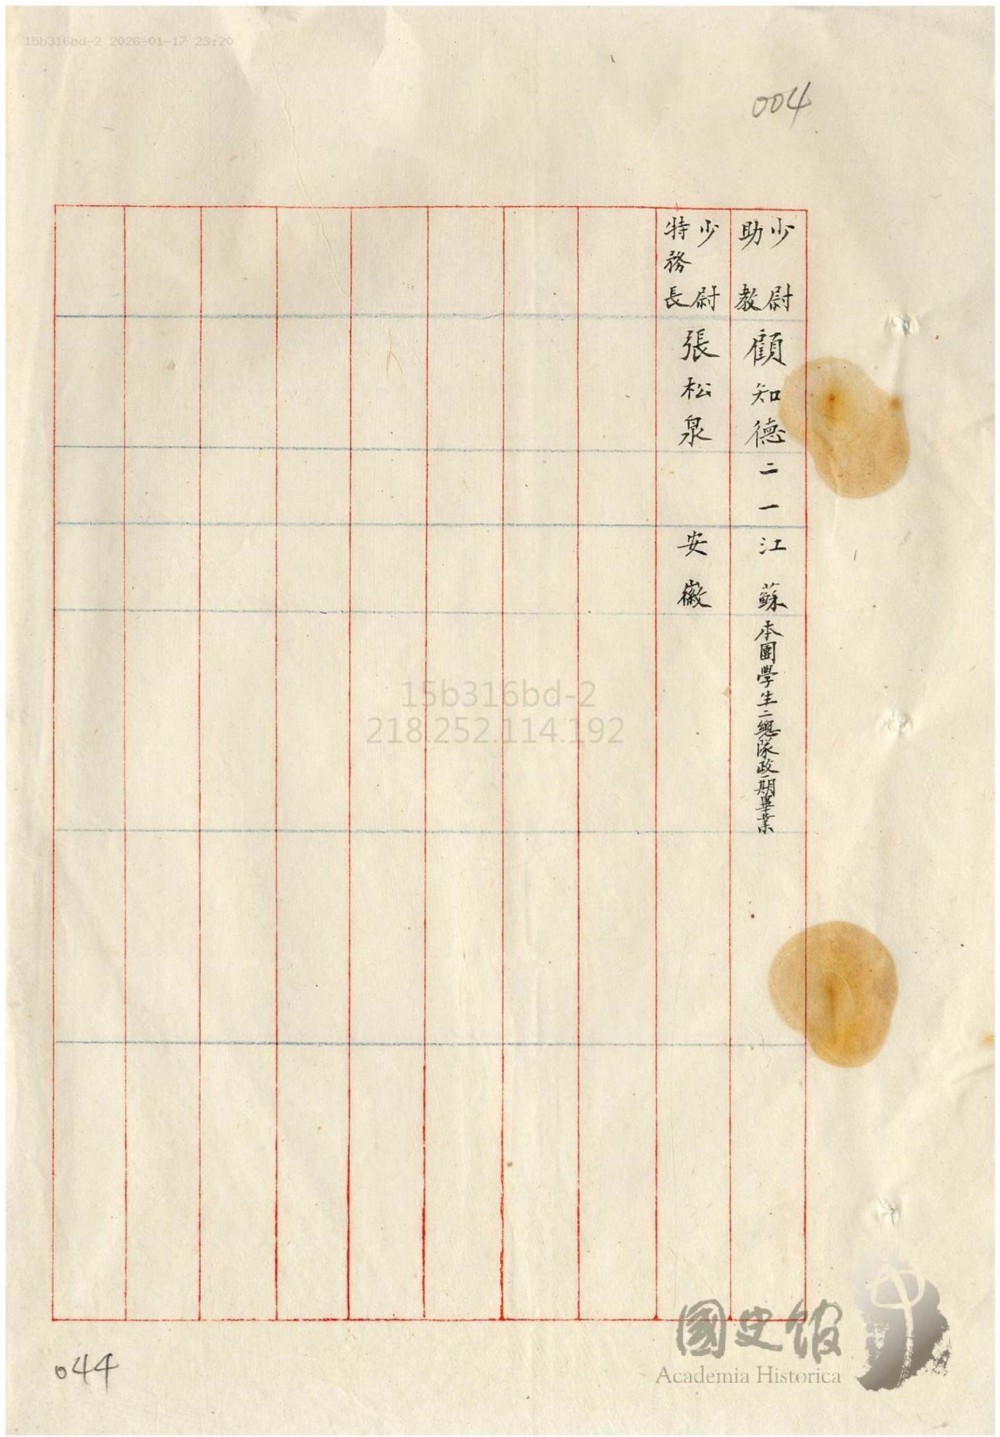 15b316bd-2 2026-01-17 23:20
004
少尉助教
顧知德
二一
江蘇
本團學生二總隊政一期畢業
少尉特務長
張松泉
安徽
15b316bd-2
218.252.114.192
044
國史館
Academia Historica